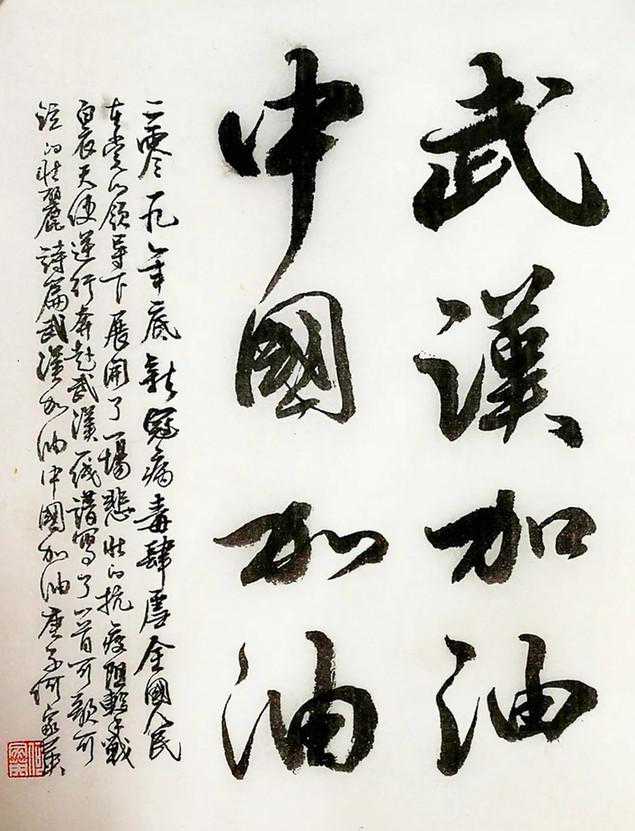 武漢加油
中國加油
二零一九年底新冠病毒肆虐全國人民
在党的領导下展開了一場悲壮的抗疫阻擊战
白衣天使逆行奔赴武漢一线譜寫了一首可歌可
泣的壮麗詩篇武漢加油中國加油庚子何家